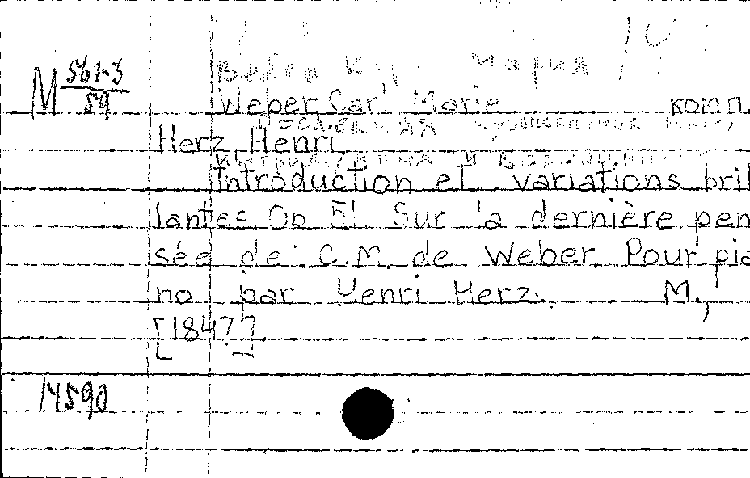 M 561-3/59
Weber, Carl Marie комп.
Herz, Henri
Introduction et variations bril
lantes Op 51 Sur la dernière pen
sée de C. M. de Weber Pour pia
no par Henri Herz. M.,
[1847]
14590